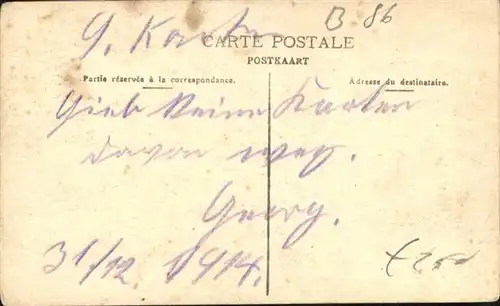 B 86
9. Karte
CARTE POSTALE
POSTKAART
Partie réservée à la correspondance.
Adresse du destinataire.
Gieb keine Karten
davon weg.
Georg.
31/12. 1914.